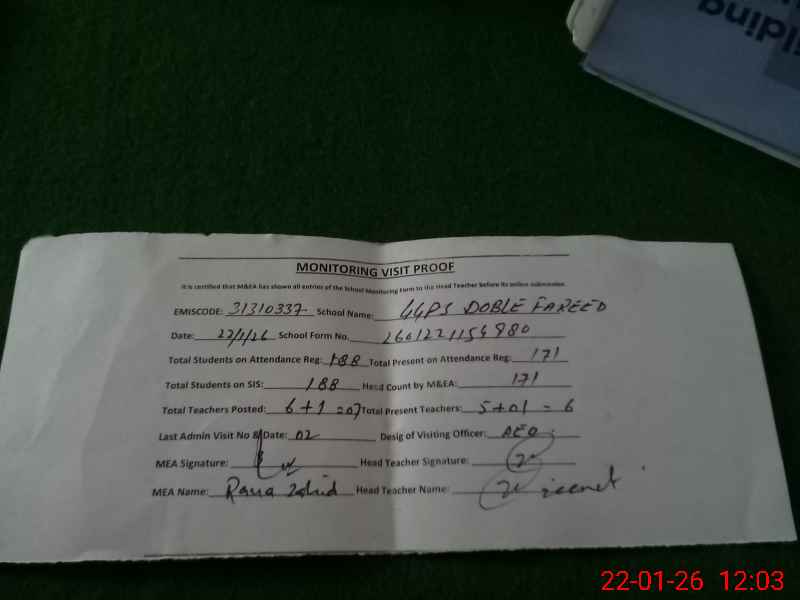 ilding
MONITORING VISIT PROOF
It is certified that M&EA has shown all entries of the School Monitoring Form to the Head Teacher before its online submission
EMISCODE: 31310337 School Name: GGPS DOBLE FAREED
Date: 22/1/26 School Form No. 2601221154980
Total Students on Attendance Reg: 188 Total Present on Attendance Reg: 171
Total Students on SIS: 188 Head Count by M&EA: 171
Total Teachers Posted: 6+1=07 Total Present Teachers: 5+01=6
Last Admin Visit No & Date: 02 Desig of Visiting Officer: AEO
MEA Signature: Head Teacher Signature:
MEA Name: Rana Zahid Head Teacher Name:
22-01-26 12:03